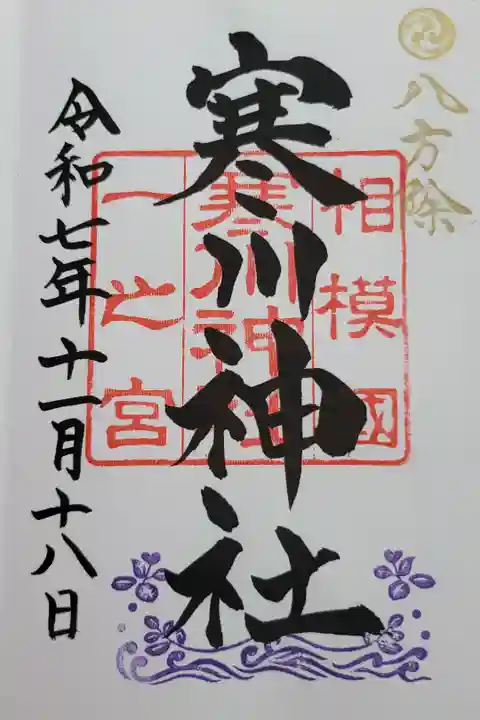 八方除
寒川神社
相模國
寒川神社
一之宮
令和七年十一月十八日